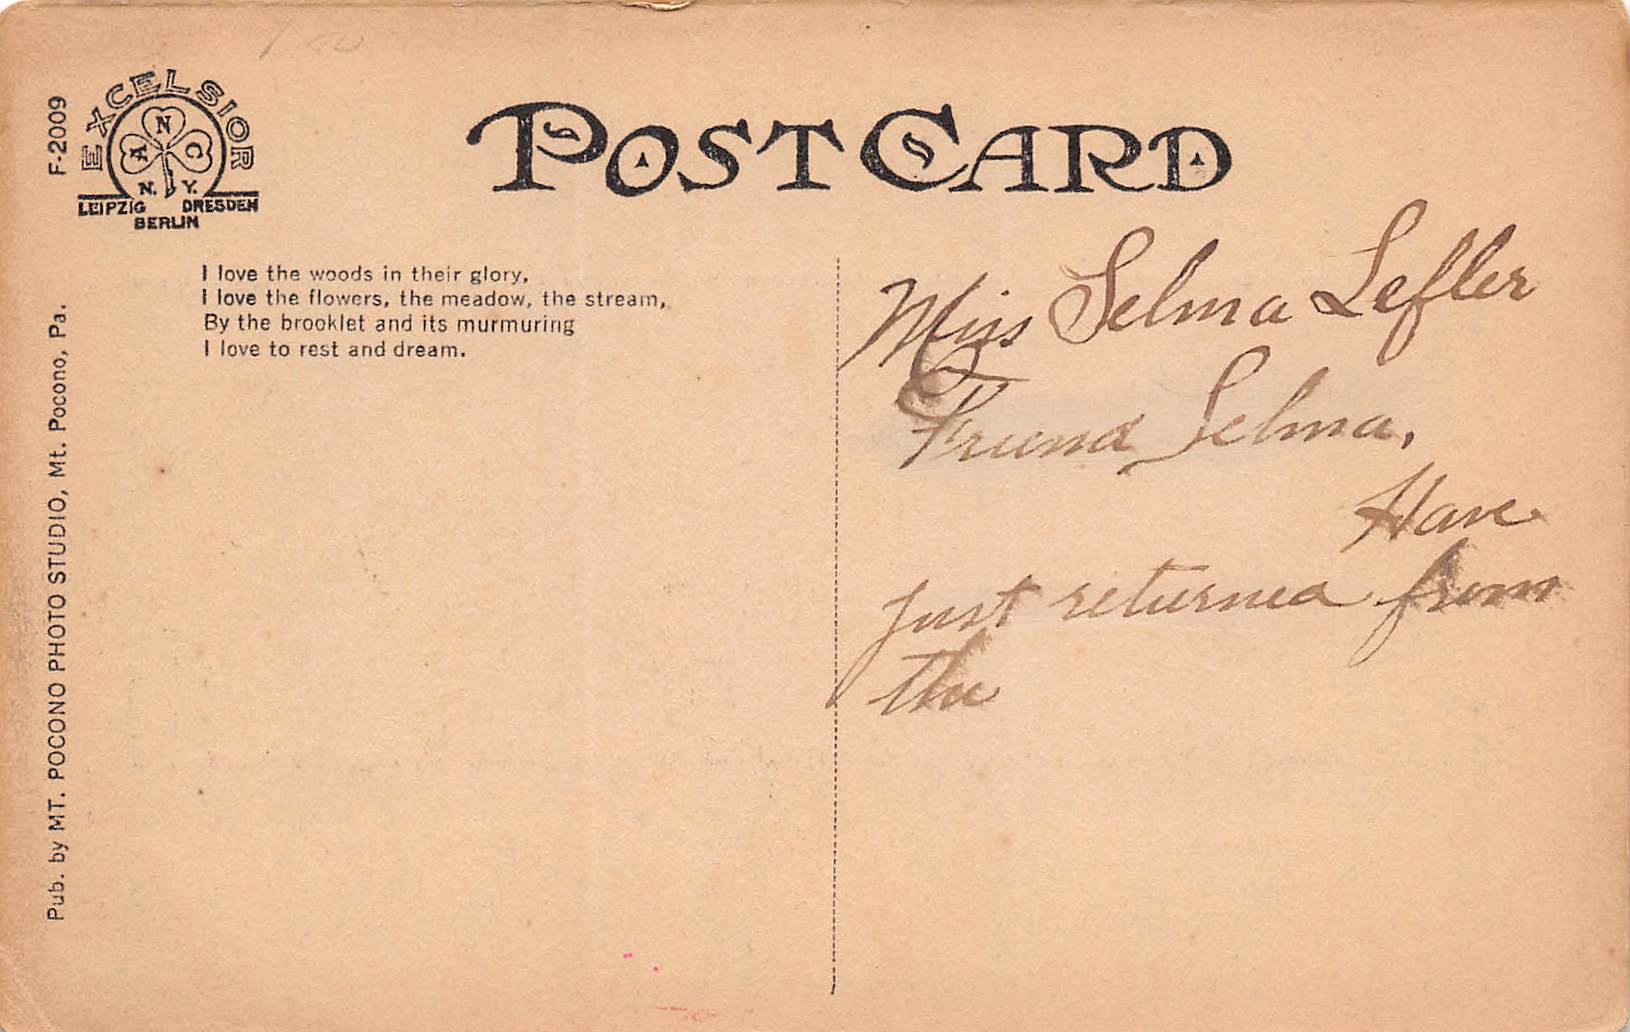 F-2009
EXCELSIOR
A N C
N. Y.
LEIPZIG DRESDEN
BERLIN
POST CARD
I love the woods in their glory,
I love the flowers, the meadow, the stream,
By the brooklet and its murmuring
I love to rest and dream.
Pub. by MT. POCONO PHOTO STUDIO, Mt. Pocono, Pa.
Miss Selma Lefler
Friend Selma,
Have
just returned from
the